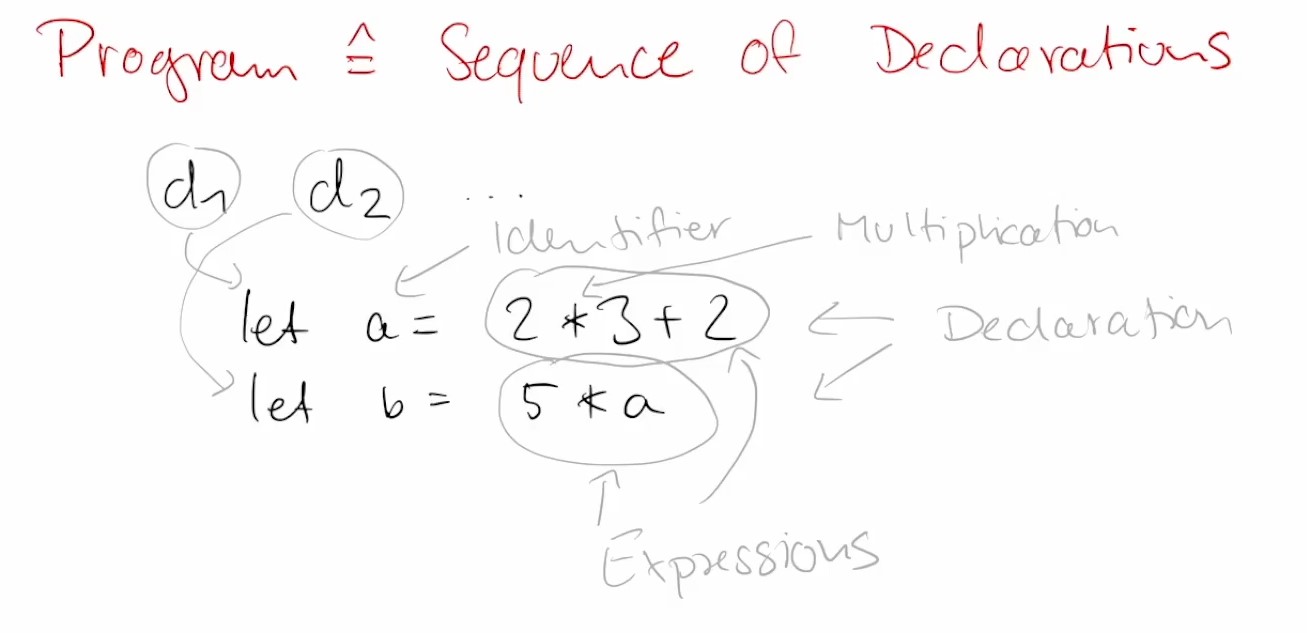 Program ≙ Sequence of Declarations
d1 d2 ...
Identifier Multiplication
let a = 2 * 3 + 2 Declaration
let b = 5 * a
Expressions